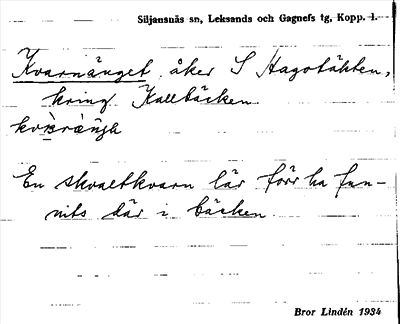 Siljansnäs sn, Leksands och Gagnefs tg, Kopp. l.
Kvarnänget åker S Hagotäkten,
kring Kallbäcken
En skvaltkvarn lär förr ha fun-
nits där i bäcken
Bror Lindén 1934